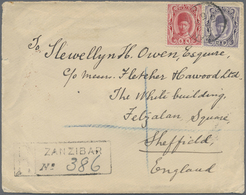 To, Llewellyn H. Owen, Esquire,
c/o Messrs. Fletcher Haward Ltd.
The White building,
Fitzalan Square,
Sheffield,
England
ZANZIBAR
No 386